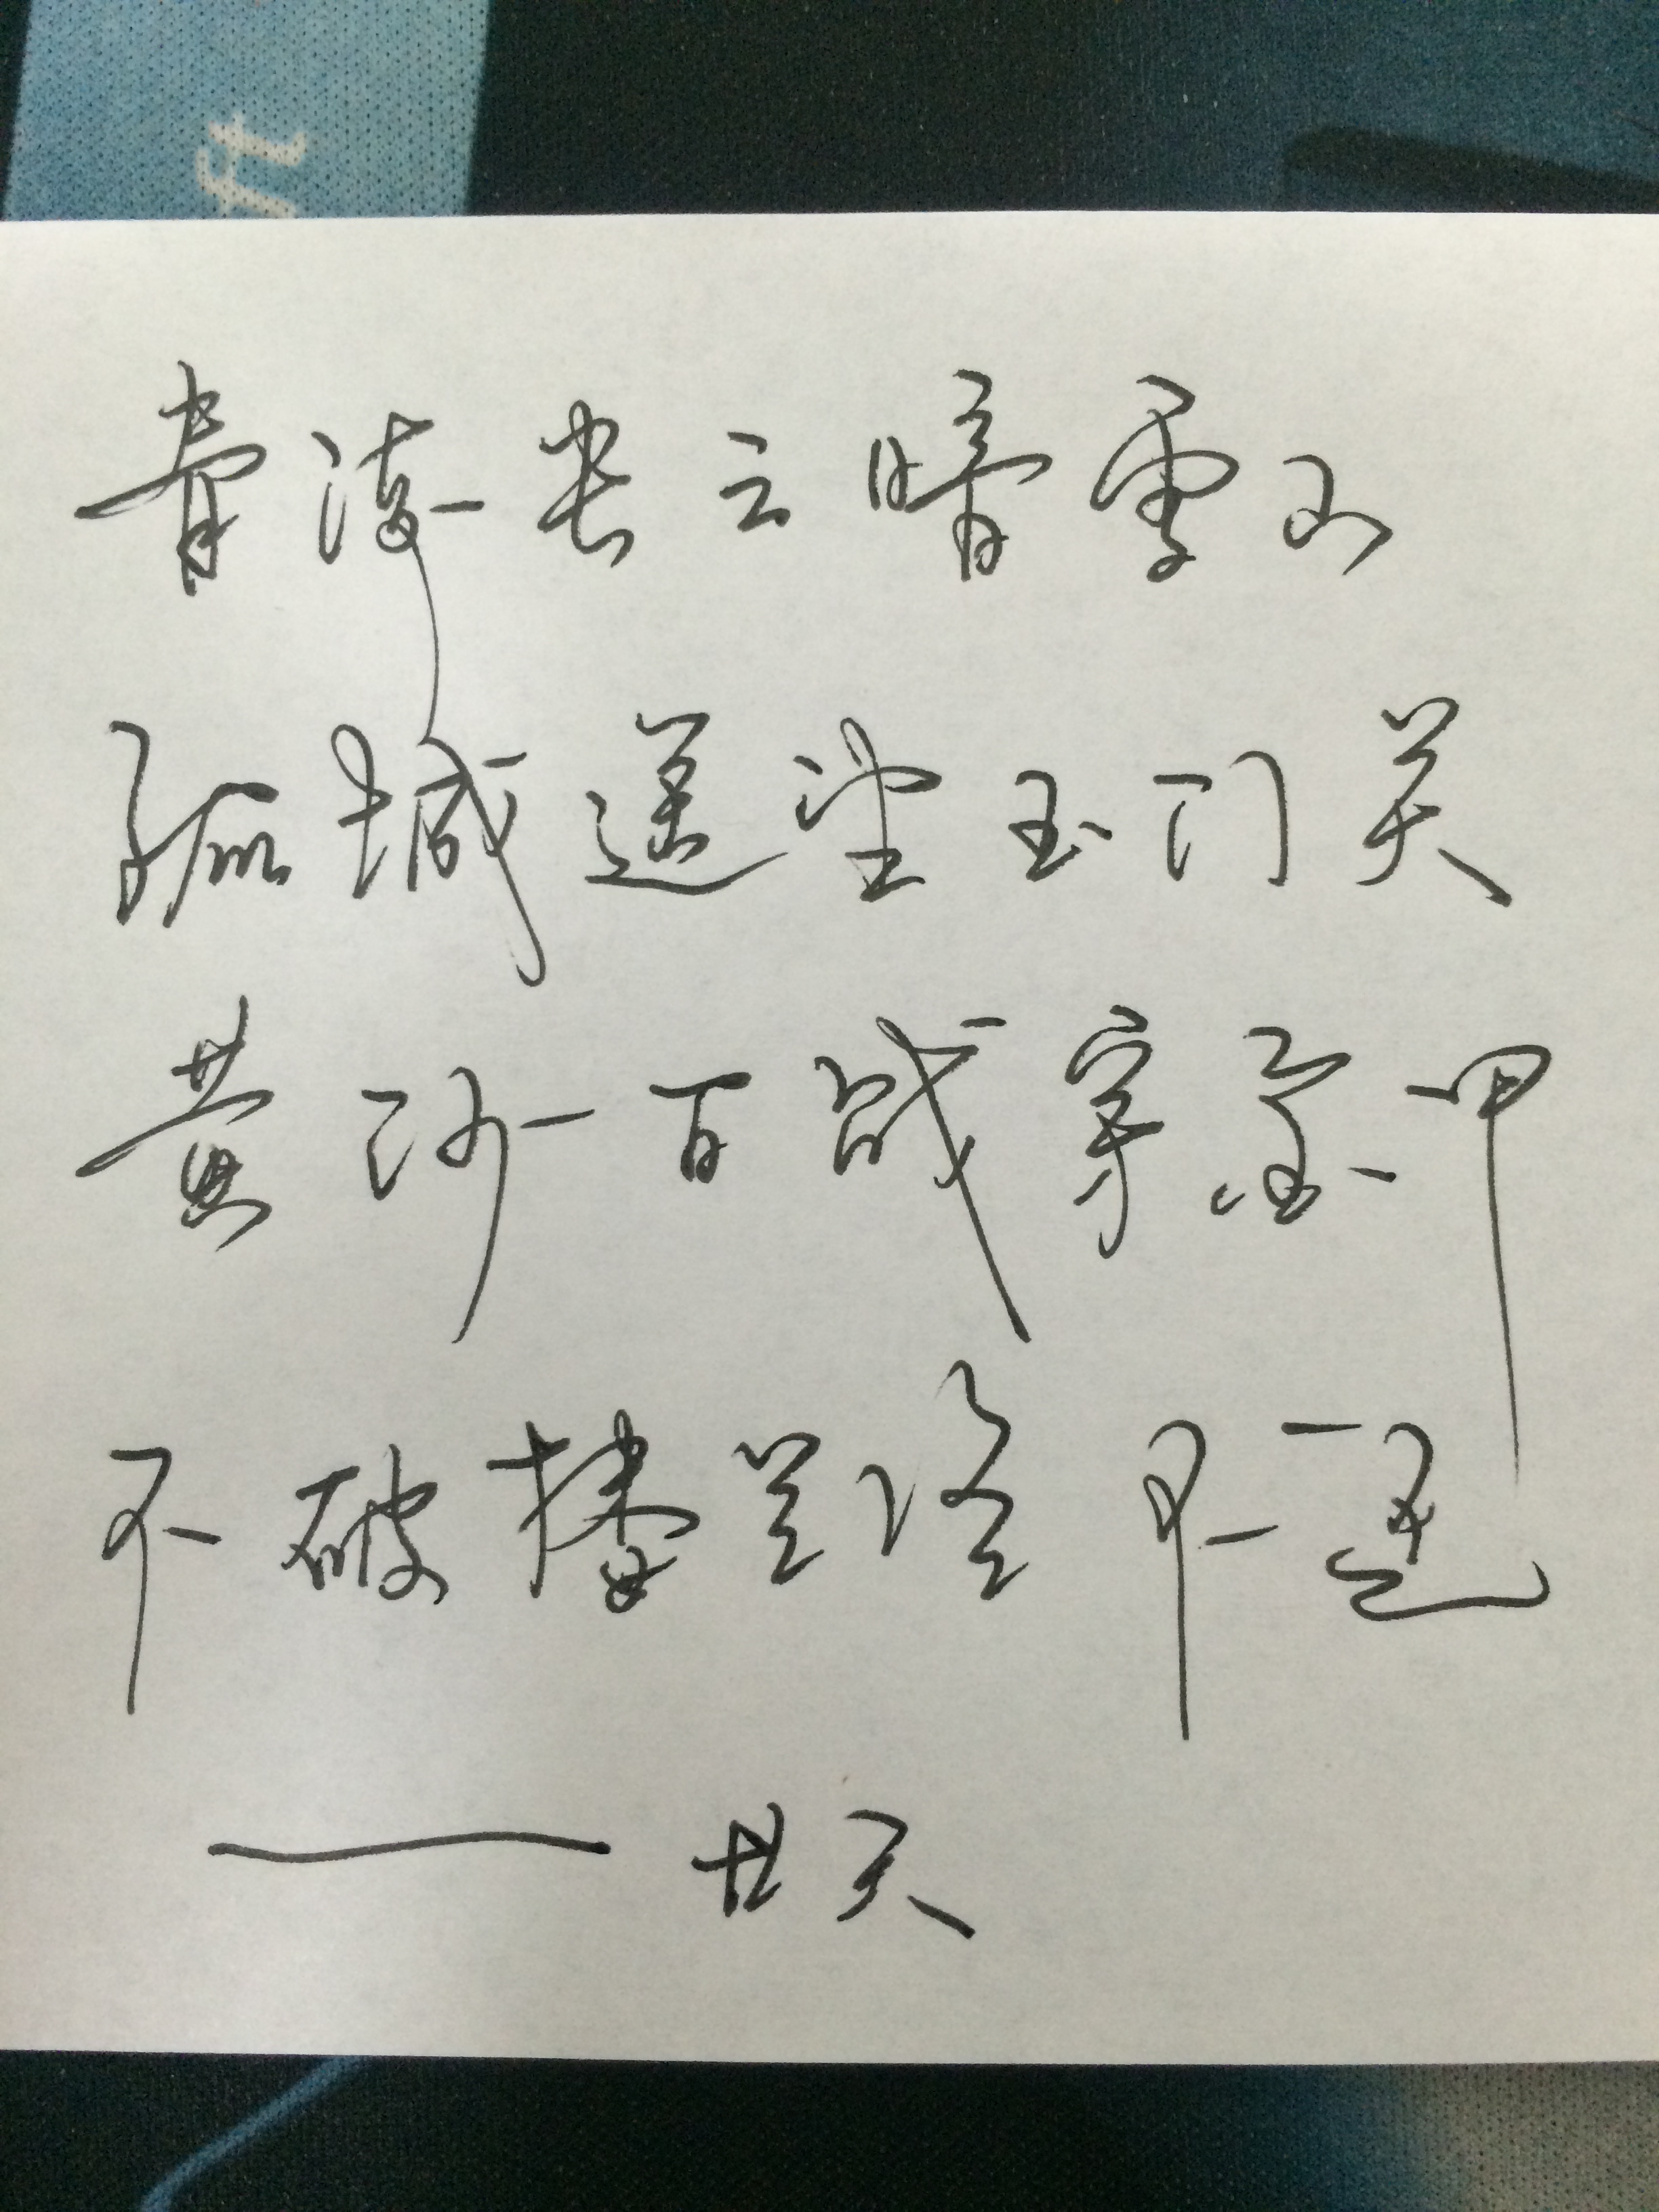 ft
青海长云暗雪山
孤城遥望玉门关
黄沙百战穿金甲
不破楼兰终不还
——世天